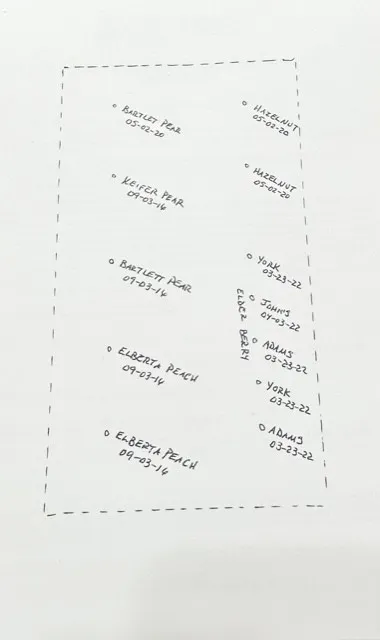 BARTLET PEAR
05-02-20
KEIFER PEAR
09-03-14
BARTLETT PEAR
09-03-14
ELBERTA PEACH
09-03-14
ELBERTA PEACH
09-03-14
HAZELNUT
05-02-20
HAZELNUT
05-02-20
ELDER BERRY
YORK
03-23-22
JOHN'S
04-03-22
ADAMS
03-23-22
YORK
03-23-22
ADAMS
03-23-22